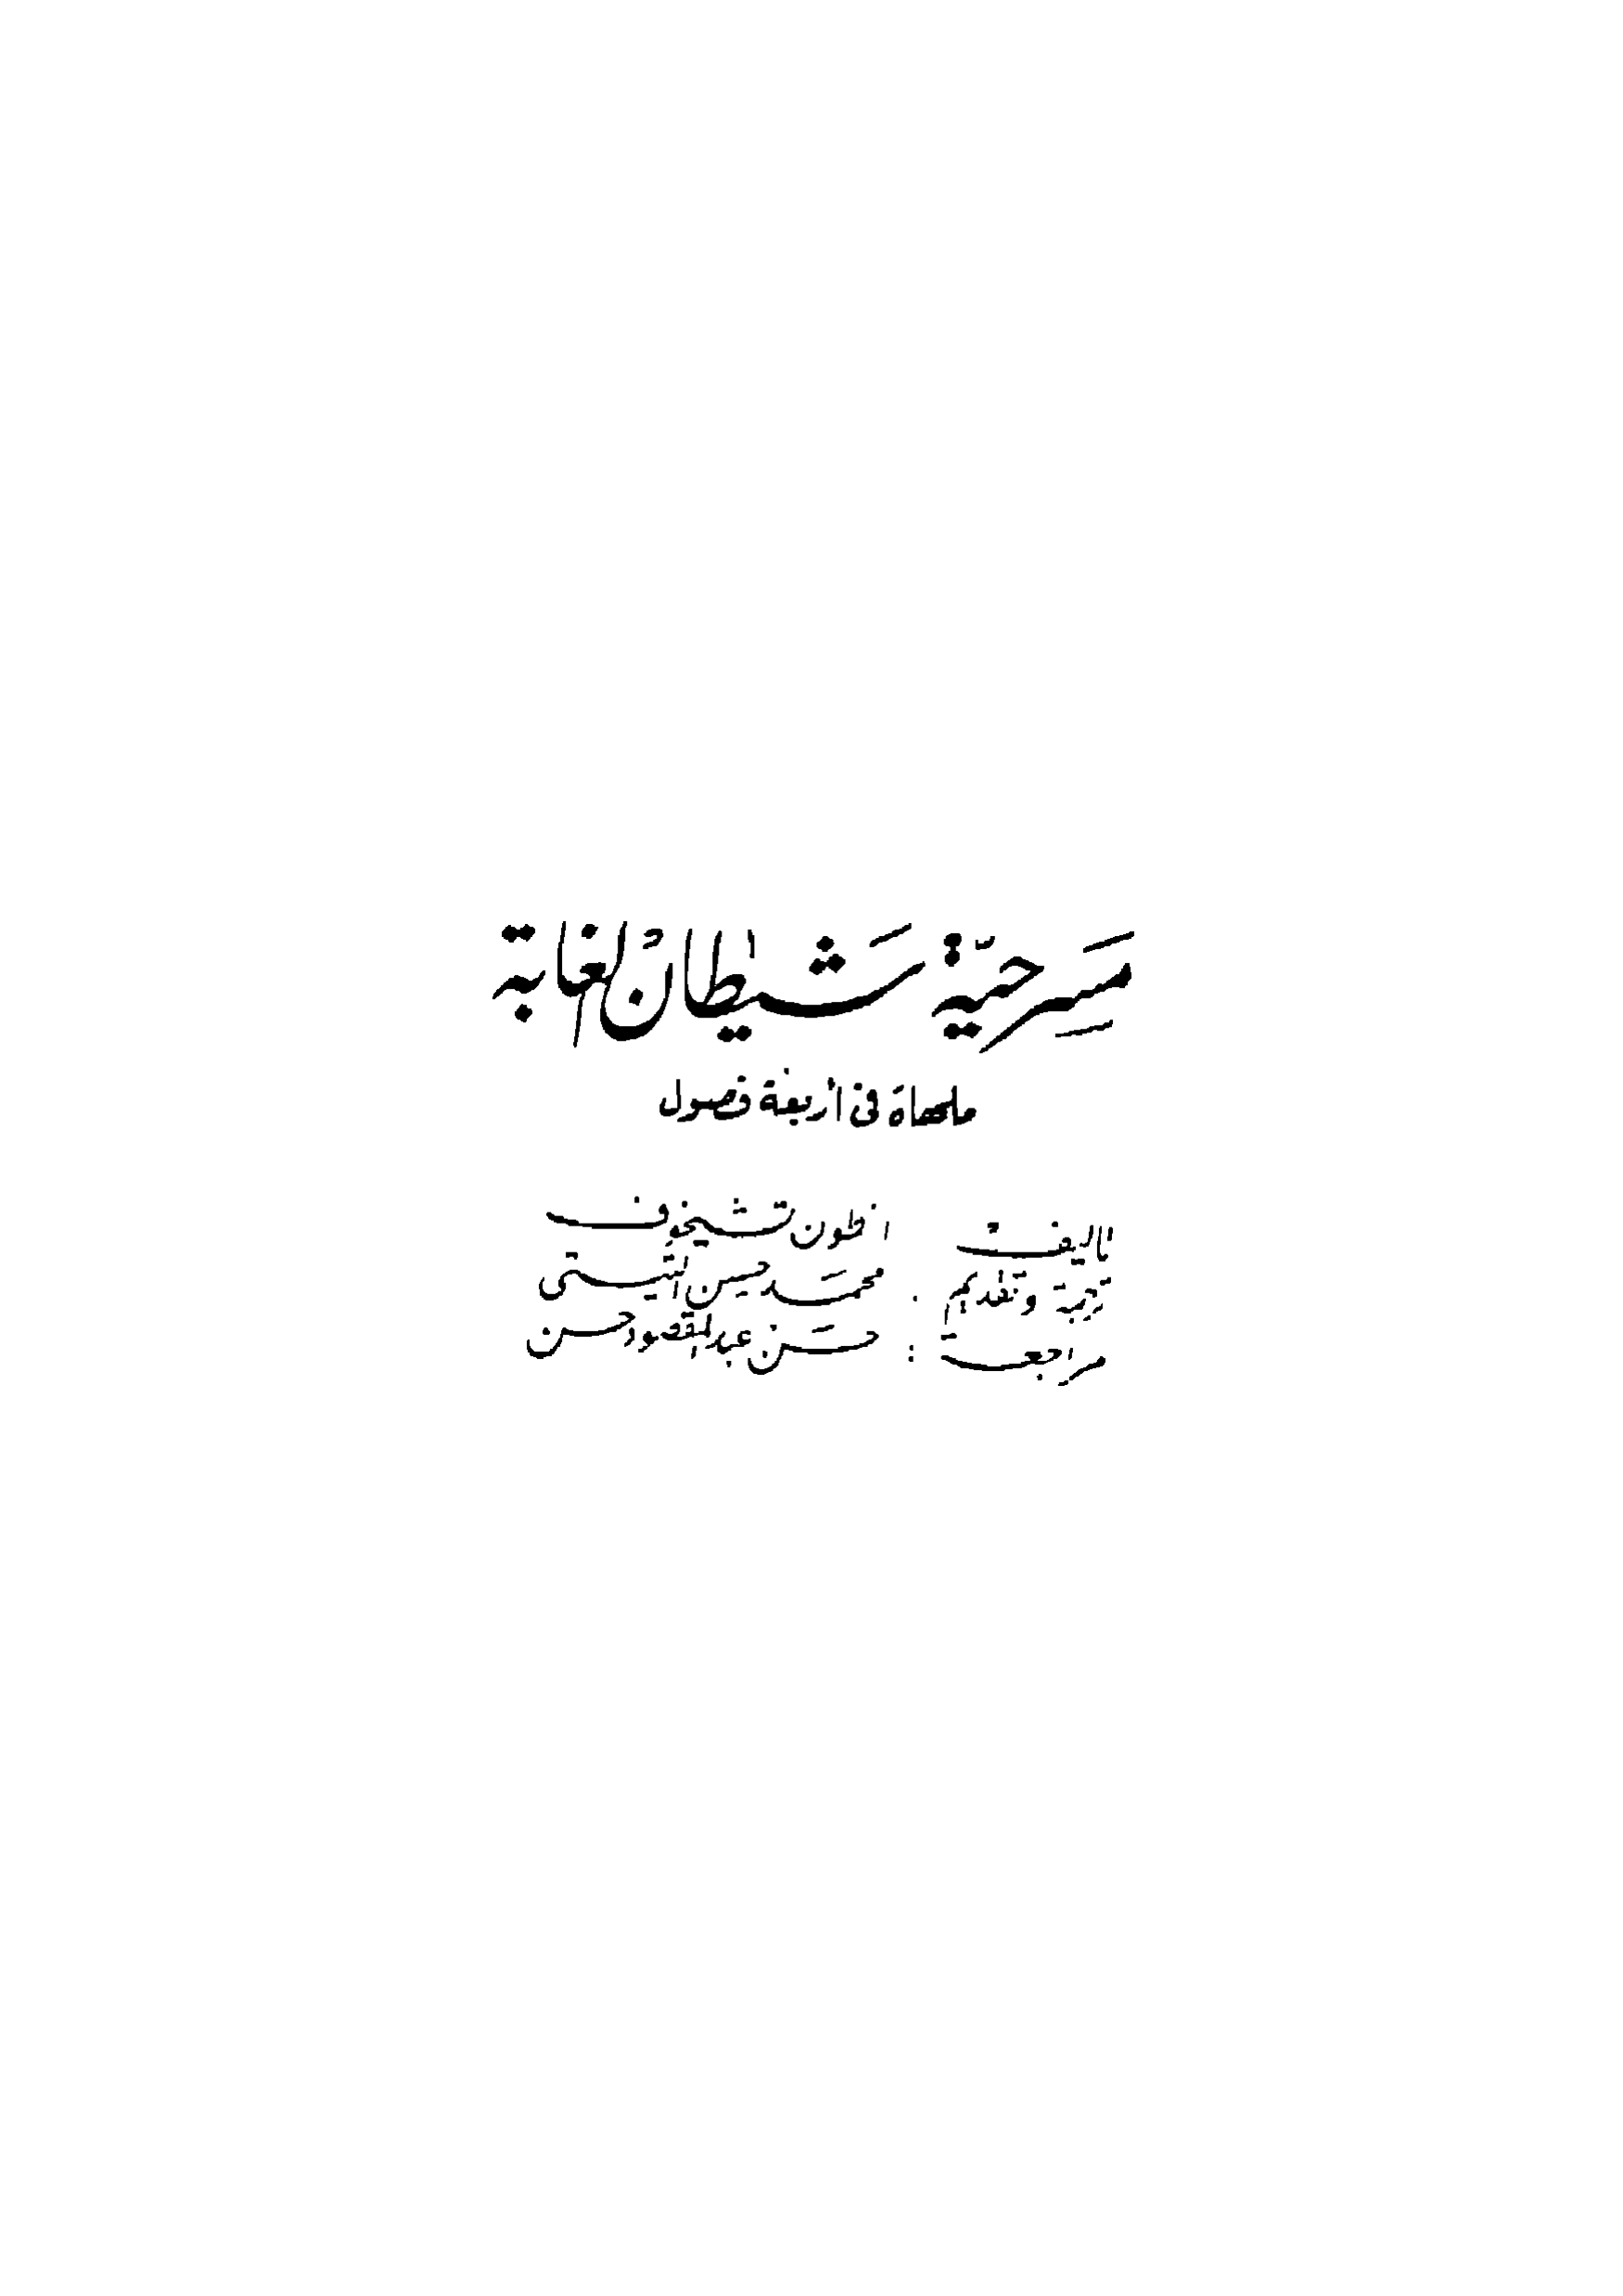 مسرحيّة شيطانُ الغابة
ملهاة فى أربعة فصول
تاليف انطون تشيخوف
ترجمة وتقديم : محمد حسين التيتى
مراجعة : حسن عبد المقصود حسن